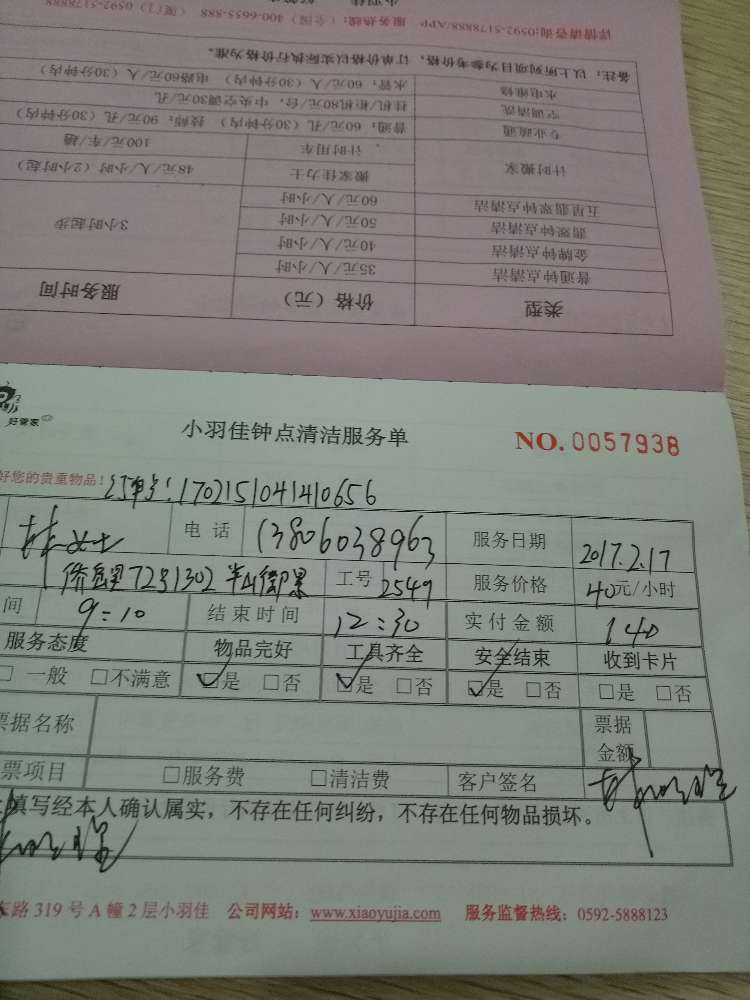 小羽佳
详情请咨询:0592-5178888/APP 服务热线:(全国)400-6655-888 (厦门)0592-5178888
备注:以上所列项目为参考价格,订单价格以实际执行价格为准。
水电维修 水管:60元/人(30分钟内) 电路60元/人(30分钟内)
空调清洗 挂机/柜机80元/台,中央空调30元/孔
专业疏通 普通:60元/孔(30分钟内) 技师:90元/孔(30分钟内)
计时搬家 计时用车 100元/车/趟
搬家佳力士 48元/人/小时(2小时起)
五星翡翠钟点清洁 60元/人/小时
翡翠钟点清洁 50元/人/小时 3小时起步
金牌钟点清洁 40元/人/小时
普通钟点清洁 35元/人/小时
类型 价格(元) 服务时间
好管家
小羽佳钟点清洁服务单 NO. 0057938
好您的贵重物品! 订单号:1702151041410656
林女士 电话 13806038963 服务日期 2017.2.17
72号1302 半山御景 工号 2549 服务价格 40元/小时
间 9:10 结束时间 12:30 实付金额 140
服务态度 物品完好 工具齐全 安全结束 收到卡片
□一般 □不满意 ☑是 □否 ☑是 □否 ☑是 □否 □是 □否
票据名称 票据金额
票项目 □服务费 □清洁费 客户签名
填写经本人确认属实,不存在任何纠纷,不存在任何物品损坏。
路 319 号 A 幢 2 层小羽佳 公司网站:www.xiaoyujia.com 服务监督热线:0592-5888123